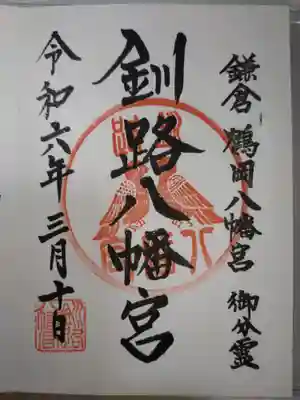 鎌倉鶴岡八幡宮 御分霊
釧路八幡宮
令和六年三月十日